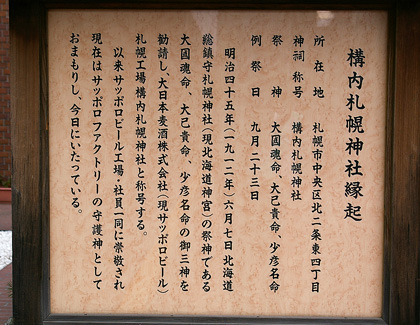 構内札幌神社縁起
所在地　札幌市中央区北二条東四丁目
神祠称号　構内札幌神社
祭神　大國魂命、大己貴命、少彦名命
例祭日　九月二十三日
明治四十五年(一九一二年)六月七日北海道
總鎮守札幌神社(現北海道神宮)の祭神である
大國魂命、大己貴命、少彦名命の御三神を
勧請し、大日本麦酒株式会社(現サッポロビール)
札幌工場構内札幌神社と称号する。
以来サッポロビール工場・社員一同に崇敬され
現在はサッポロファクトリーの守護神として
おまもりし、今日にいたっている。